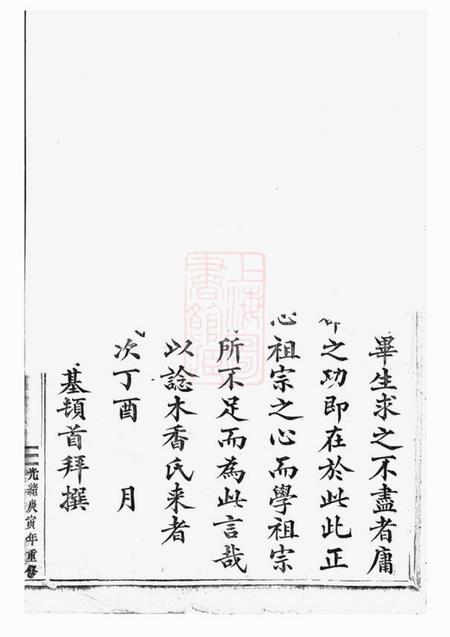 畢生求之不盡者庸
之功即在於此此正
心祖宗之心而學祖宗
所不足而為此言哉
以諗木香氏来者
次丁酉 月
基頓首拜撰
光緒庚寅年重修
上海圖書館藏